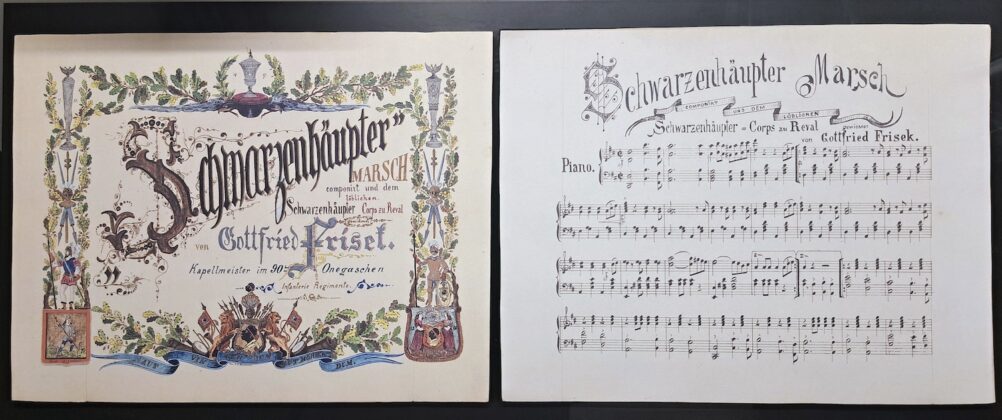 „Schwarzenhäupter”
MARSCH
componirt und dem
löblichen
Schwarzenhäupter Corps zu Reval
von Gottfried Frisek.
Kapellmeister im 90ten Onegaschen
Infanterie Regimente
Schwarzenhäupter Marsch
COMPONIRT UND DEM LÖBLICHEN
Schwarzenhäupter = Corps zu Reval
GEWIDMET
von Gottfried Frisek.
Piano.